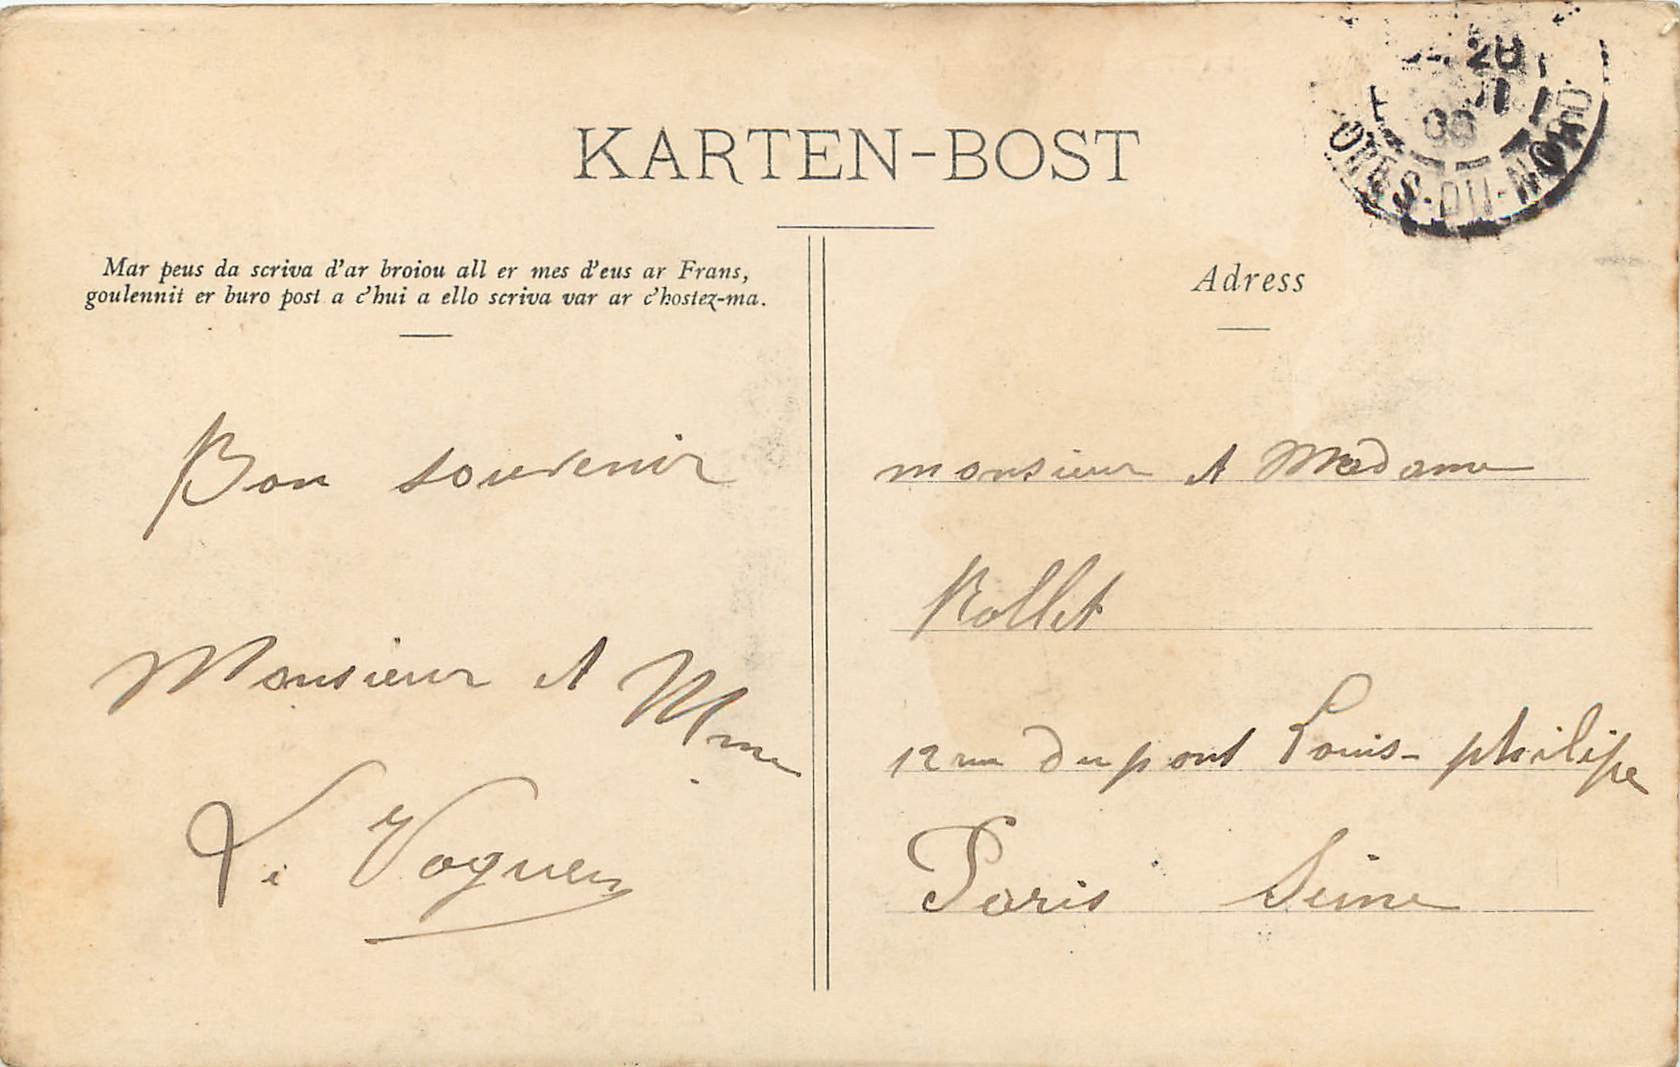 KARTEN-BOST
Mar peus da scriva d'ar broiou all er mes d'eus ar Frans,
goulennit er buro post a c'hui a ello scriva var ar c'hostez-ma.
Bon souvenir
Monsieur et Mme
Le Voguer
Adress
monsieur et Madame
Rollet
12 rue du pont Louis-philipe
Paris Seine
20
08
DU-NORD